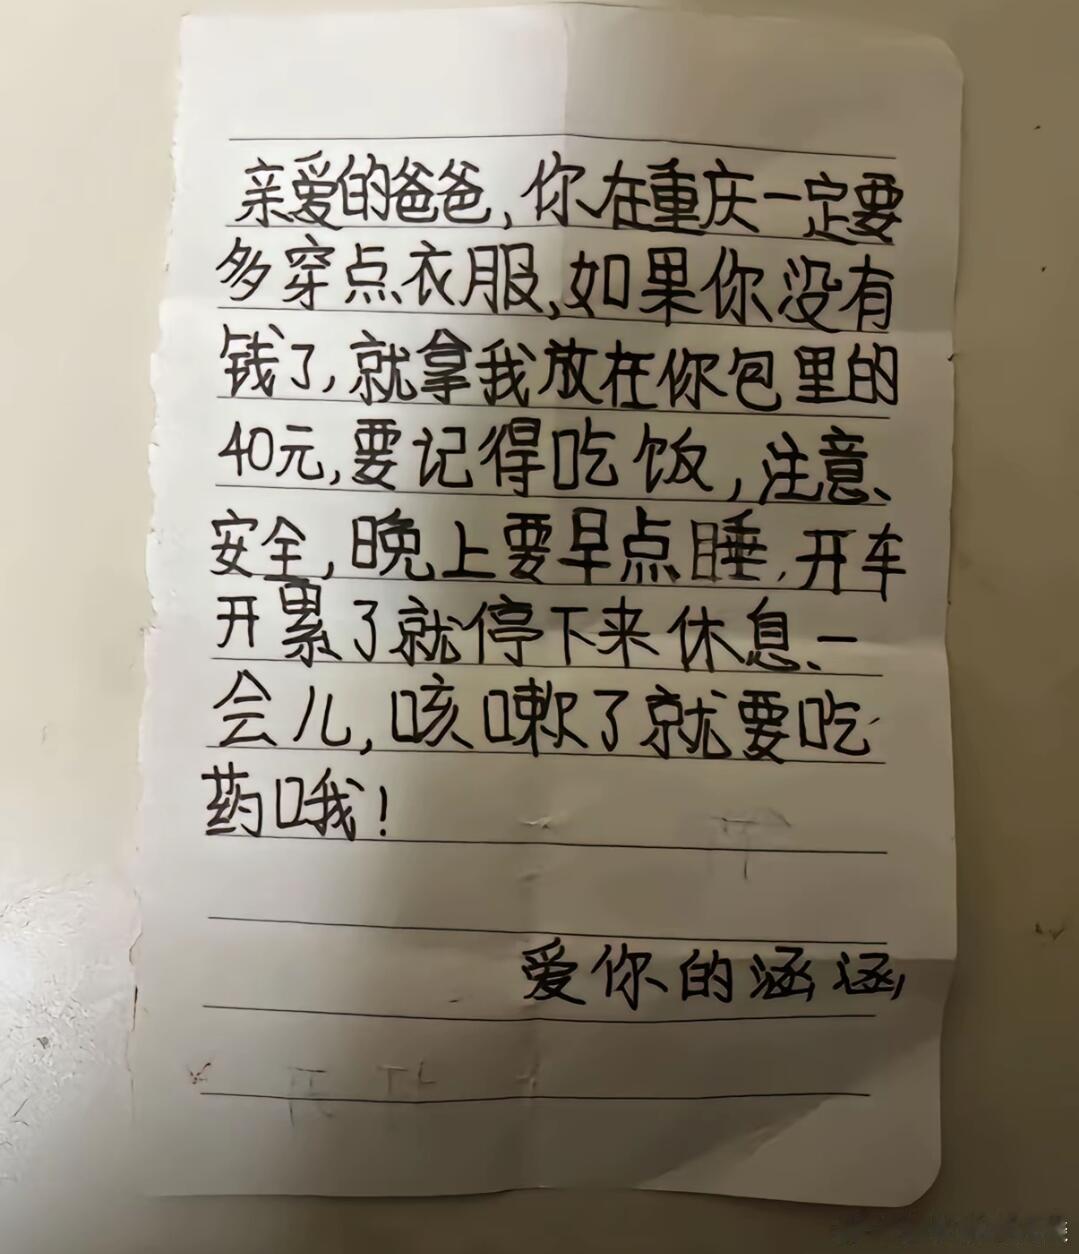 亲爱的爸爸,你在重庆一定要
多穿点衣服,如果你没有
钱了,就拿我放在你包里的
40元,要记得吃饭,注意
安全,晚上要早点睡,开车
开累了就停下来休息一
会儿,咳嗽了就要吃
药哦!
爱你的涵涵